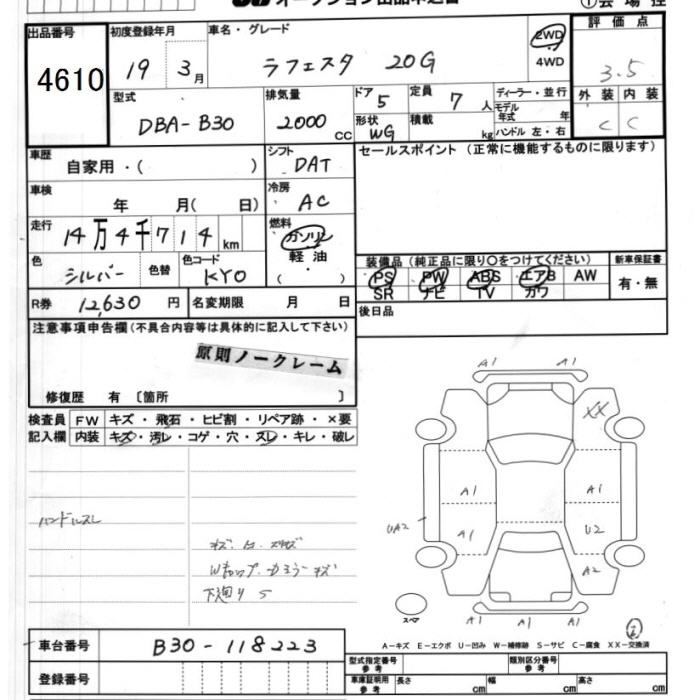 オークション出品申込書
①会場控
出品番号
4610
初度登録年月
19 3月
車名・グレード
ラフェスタ 20G
2WD
4WD
評価点
3.5
外装 内装
C C
型式
DBA-B30
排気量
2000 cc
ドア 5
定員 7 人
形状 WG
積載 kg
ディーラー・並行
モデル年式 年
ハンドル 左・右
車歴
自家用・( )
シフト
DAT
セールスポイント (正常に機能するものに限ります)
車検
年 月( 日)
冷房
AC
走行
14万4千714km
燃料
ガソリン
軽油
・
( )
色
シルバー
色替
色コード
KY0
装備品 (純正品に限り〇をつけてください)
新車保証書
PS PW ABS エアB AW
SR ナビ TV カワ
有・無
R券 12,630 円
名変期限 月 日
後日品
注意事項申告欄 (不具合内容等は具体的に記入して下さい)
原則ノークレーム
修復歴 有 〔箇所 〕
検査員記入欄
FW キズ・飛石・ヒビ割・リペア跡・×要
内装 キズ・汚レ・コゲ・穴・スレ・キレ・破レ
ハンドルスレ
下廻りS
A1 A1
XX
A1 A1
UA2
A1 U2
A2
A1 A1 A1
スペア
A-キズ E-エクボ U-凹み W-補修跡 S-サビ C-腐食 XX-交換済
車台番号
B30-118223
登録番号
型式指定番号 参考
類別区分番号 参考
車庫証明用 参考
長さ cm
幅 cm
高さ cm